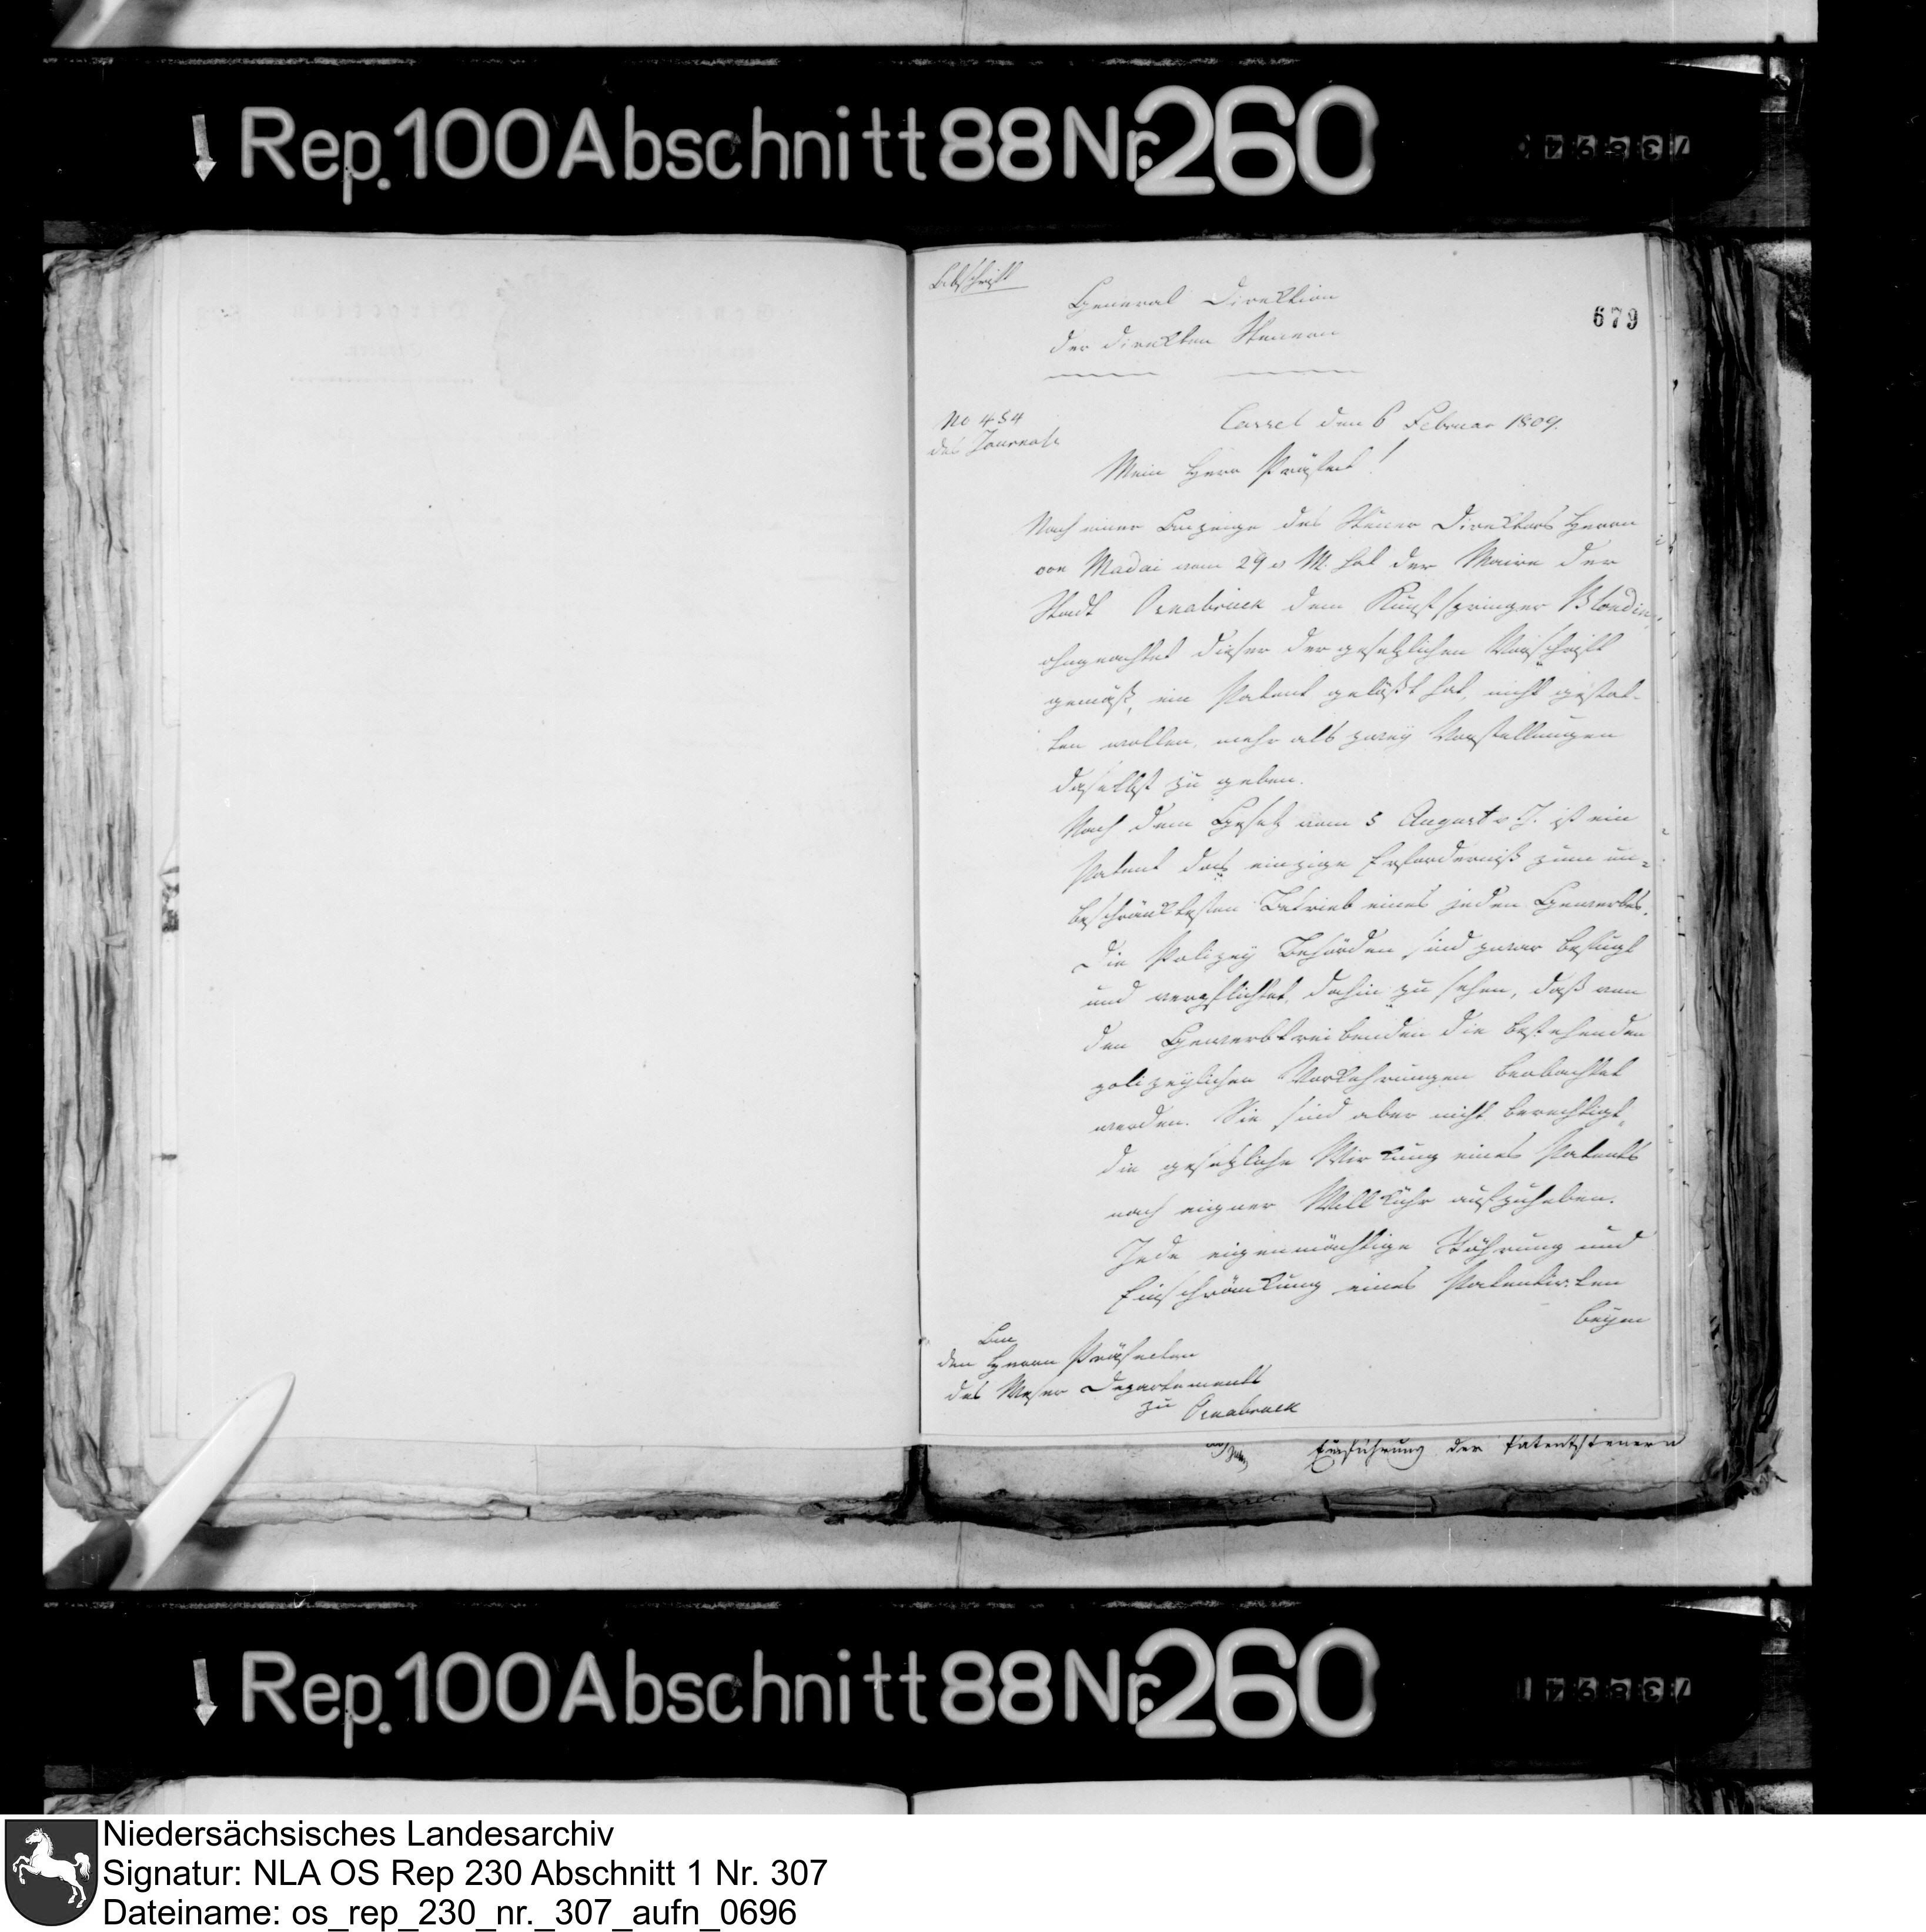 Rep. 100 Abschnitt 88 Nr. 260
Abschrift
General Direktion
der direkten Steuern
679
No 454
des Journals
Cassel den 6 Februar 1809.
Mein Herr Präfect!
Nach einer Anzeige des Steuer Direktors Herrn
von Madai vom 29 v M. hat der Maire der
Stadt Osnabrück dem Kunstspringer Blondin,
ohngeachtet dieser der gesetzlichen Vorschrift
gemäß, ein Patent gelößt hat, nicht gestat-
ten wollen, mehr als zwey Vorstellungen
daselbst zu geben.
Nach dem Gesetz vom 5 August v J. ist ein
Patent das einzige Erforderniß zum un-
beschränktesten Betrieb eines jeden Gewerbes.
Die Polizey Behörden sind zwar befugt
und verpflichtet, dahin zu sehen, daß von
den Gewerbtreibenden die bestehenden
polizeylichen Vorkehrungen beobachtet
werden. Sie sind aber nicht berechtigt,
die gesetzliche Wirkung eines Patents
nach eigner Willkühr aufzuheben.
Jede eigenmächtige Stöhrung und
Einschränkung eines Patentirten
beym
An
den Herrn Präfecten
des Weser Departements
zu Osnabrück
Einführung der Patentsteuern
Rep. 100 Abschnitt 88 Nr. 260
Niedersächsisches Landesarchiv
Signatur: NLA OS Rep 230 Abschnitt 1 Nr. 307
Dateiname: os_rep_230_nr._307_aufn_0696